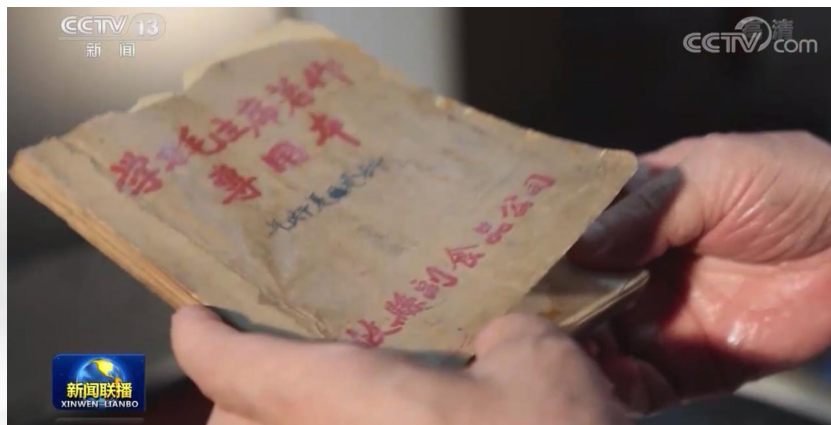 CCTV 13
新闻
高清
CCTV com
学习毛主席著作
专用本
副食品公司
新闻联播
XINWEN LIANBO